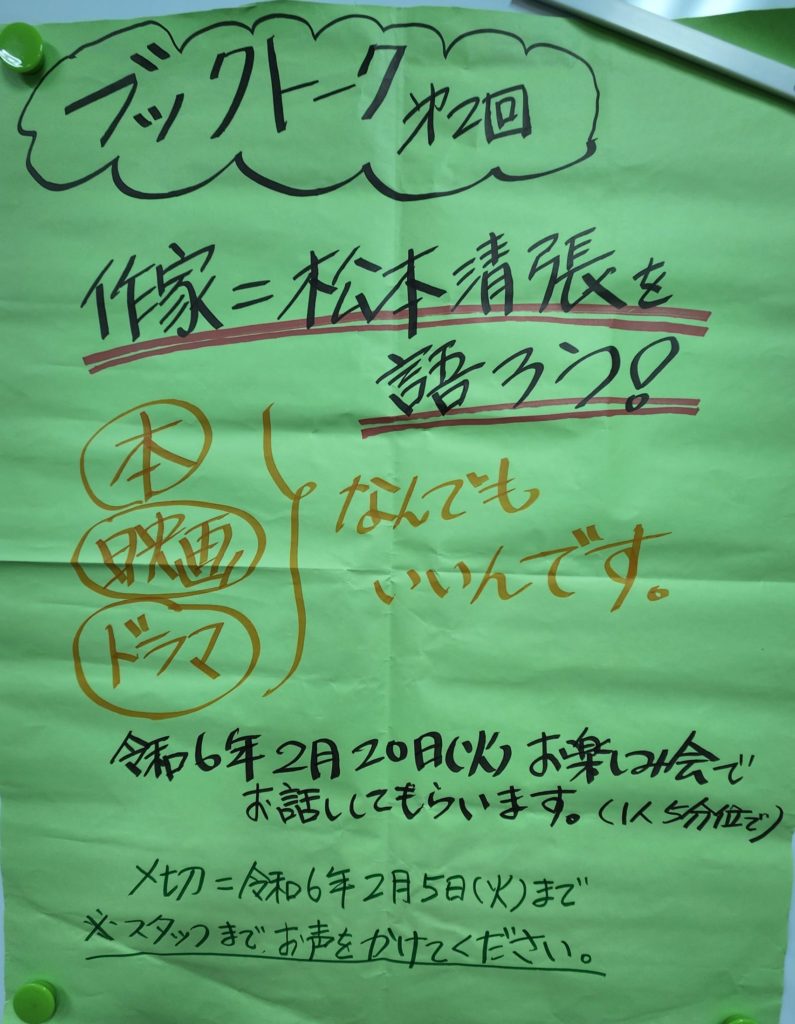 ブックトーク 第2回
作家=松本清張を
語ろう!
本
映画
ドラマ
なんでも
いいんです。
令和6年2月20日(火)お楽しみ会で
お話ししてもらいます。(1人5分位で)
〆切=令和6年2月5日(火)まで
※スタッフまで、お声をかけてください。